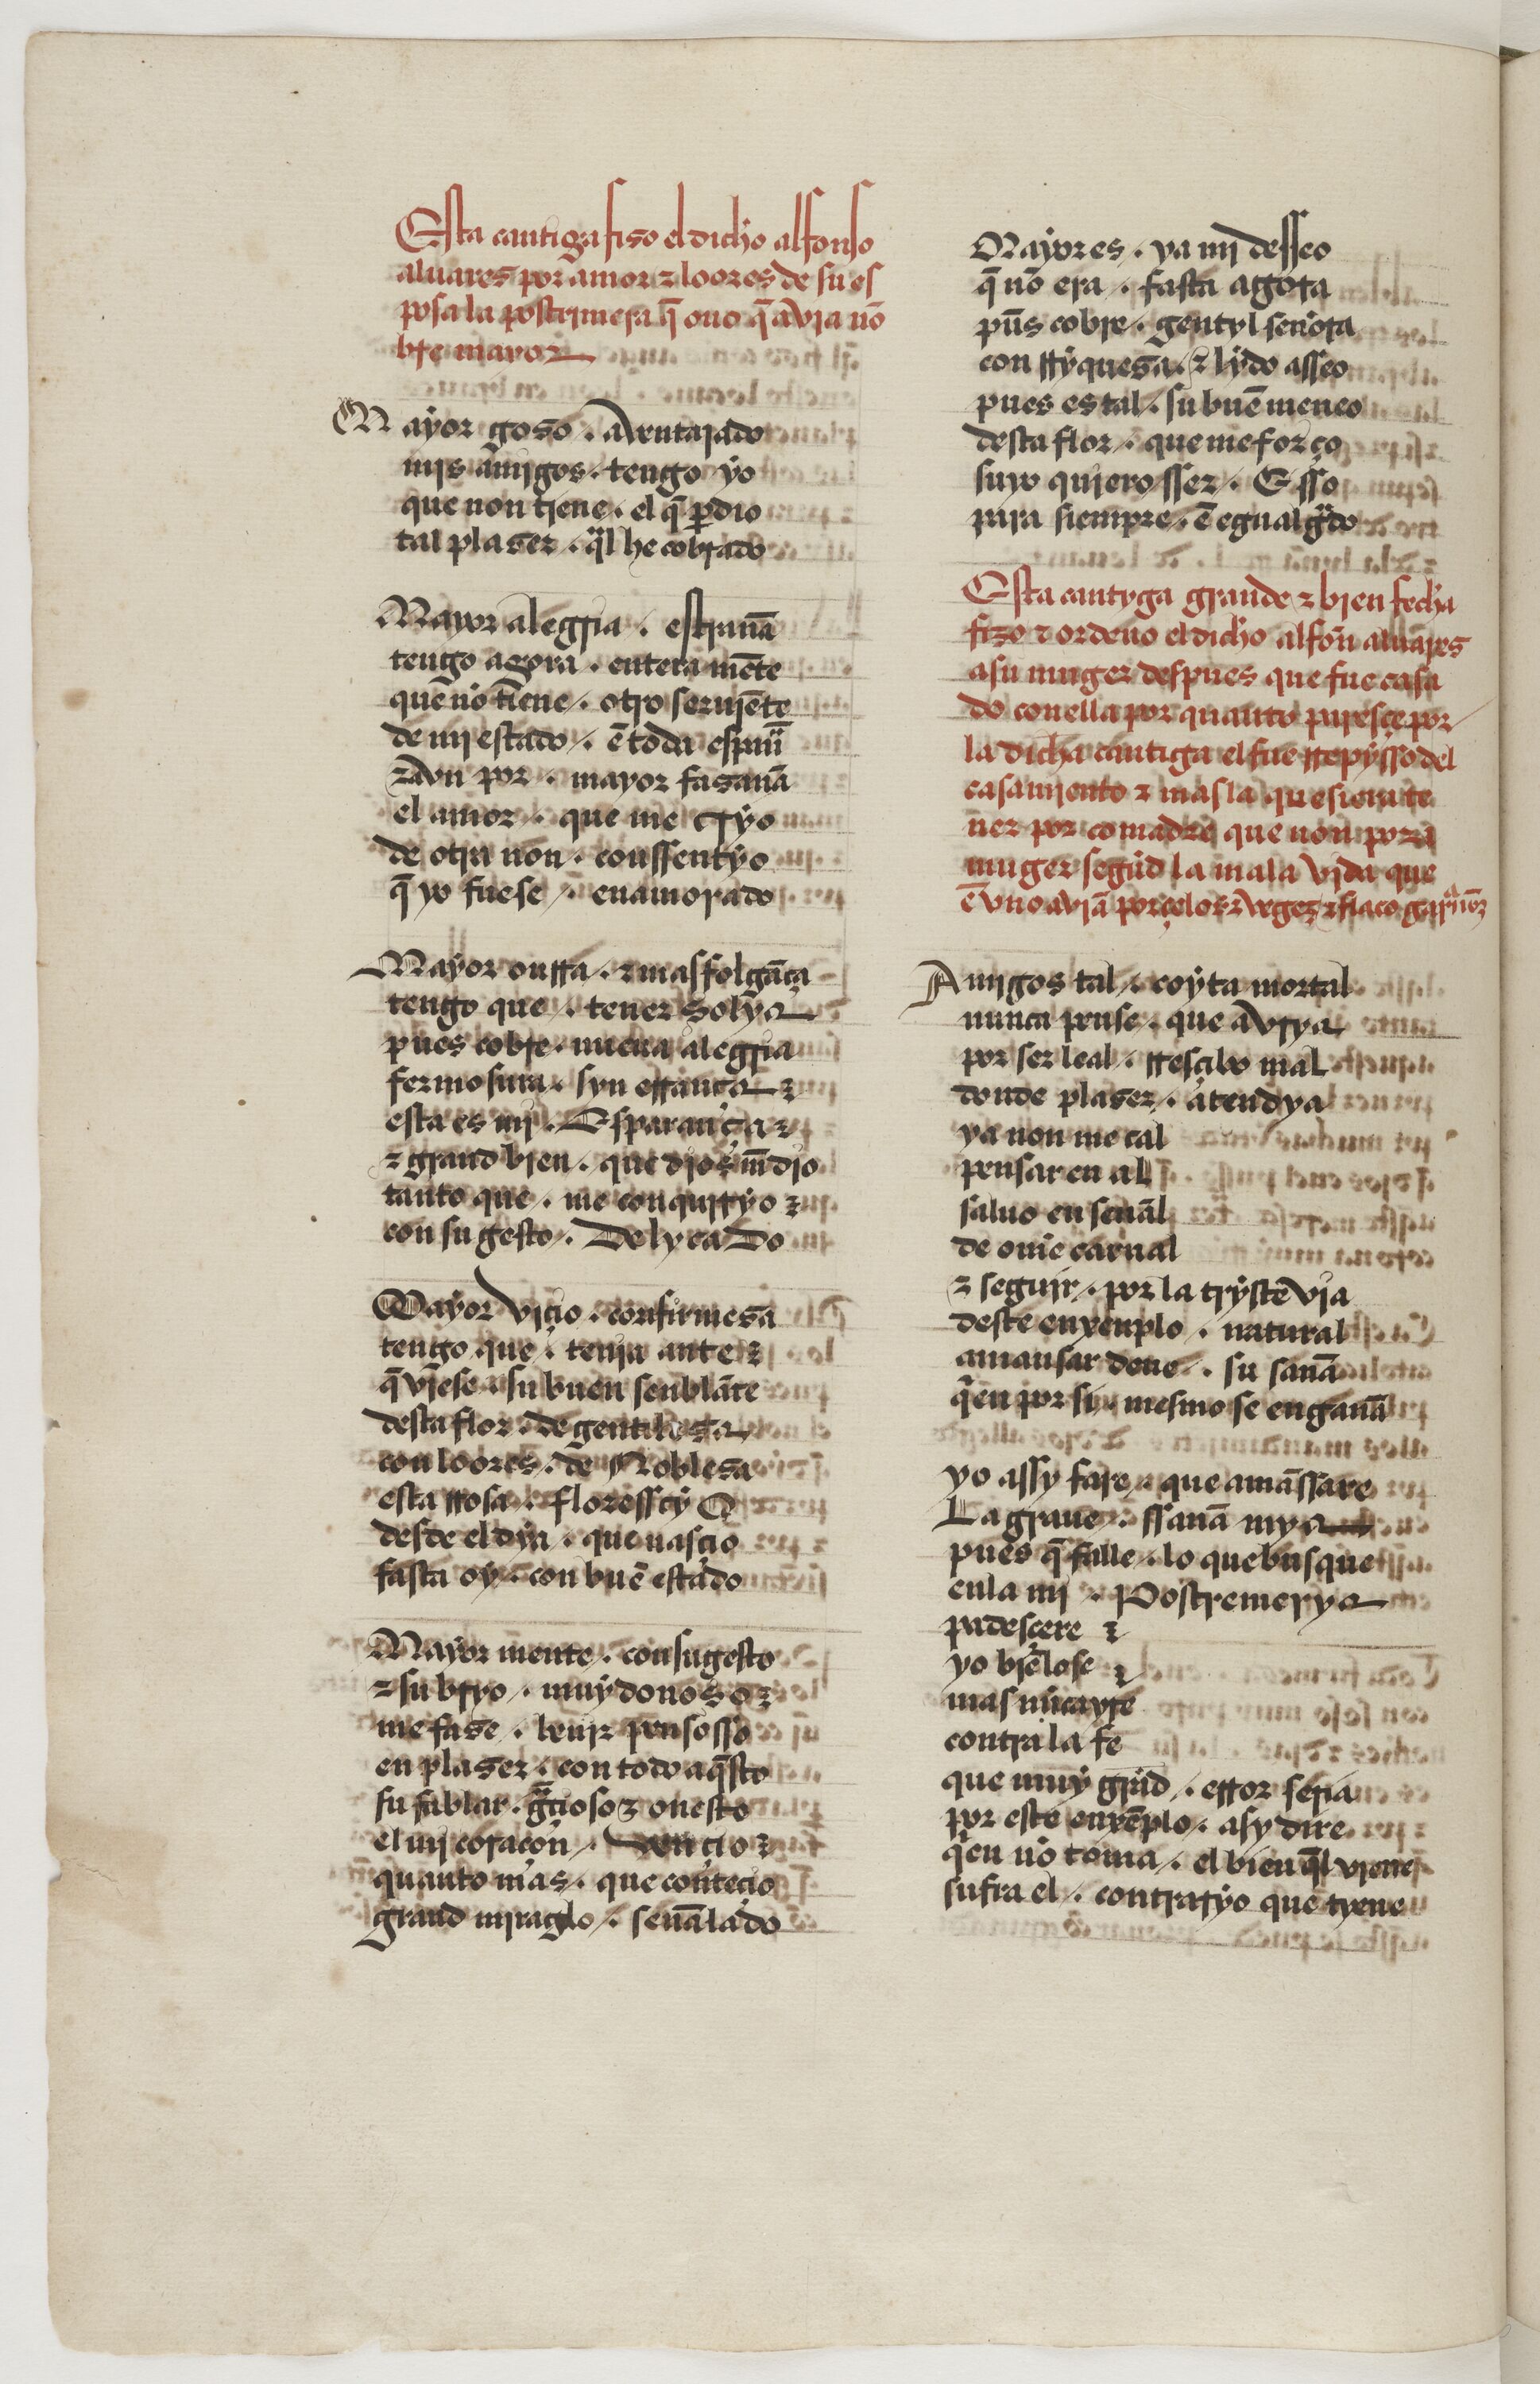 Esta cantiga fiso el dicho alfonso
aluares por amor τ loores de su es
posa la postrimera q̄ ouo q̄ avia nō
bre mayor
Mayor goso . Aventajado
mis amigos . tengo yo
que non tiene . el q̄ ꝑdio
tal plaser . q̄l he cobrado
Mayor alegria . estranā
tengo agora . entera mēte
que nō tiene . otro seruiēte
de mi estado . ē toda espanā
τ avn por . mayor fasanā
el amor . que me cryo
de otra non . conssentyo
q̄ yo fuese . enamorado
Mayor onrra . τ mas folgāça
tengo que . tener solya
pues cobre . nueua alegria
fermosura . syn errança
esta es mi . Esparança
τ grand bien . que dios m̄ dio
tanto que . me conquiryo
con su gesto . Delycado
Mayor viçio . con firmesa
tengo que . tenia ante
q̄ viese . su buen senblāte
desta flor . de gentilesa
con loores . de Noblesa
esta rrosa . floresçyo
desde el dya . que nasçio
fasta oy . con buē estado
Mayor mente . con su gesto
τ su bryo . muy donoso
me fase . beuir pensosso
en plaser . con todo aq̄sto
su fablar . gr̄çioso τ onesto
el mi coraçon . vençio
quanto mas . que conteçio
grand miraglo . senālado
Mayor es . ya mi desseo
q̄ nō era . fasta agora
pūs cobre . gentyl señora
con rryquesa . τ lydo asseo
pues es tal . su buē meneo
desta flor . que me forço
suyo quiero sser . E sso
para siempre . ē egual gr̄do
Esta cantyga grande τ bien fecha
fizo τ ordeno el dicho alfoñ aluares
a su muger despues que fue casa
do con ella por quanto paresçe por
la dicha cantiga el fue rrepysso del
casamiento τ mas la quesiera te
ner por comadre que non por a
muger segūd la mala vida que
ē vno aviā por çelos τ veges τ flaco
Amigos tal . coyta mortal
nunca pense . que avrya
por ser leal . rresçibo mal
donde plaser . atendya
ya non me cal
pensar en al
saluo en senāl
de om̄e carnal
τ seguir . por la tryste via
deste enxenplo . natural
amansar deue . su sanā
q̄en por si . mesmo se enganā
yo assy fare . que amāssare
La graue . ssanā mya
pues q̄ falle . lo que busque
en la mi . Postremerya
padesçere
yo biē lo se
mas nūca yre
contra la fe
que muy grād . error seria
por este enxēplo . asy dire
q̄en nō toma . el bien q̄l viene
sufra el . contraryo que tyene